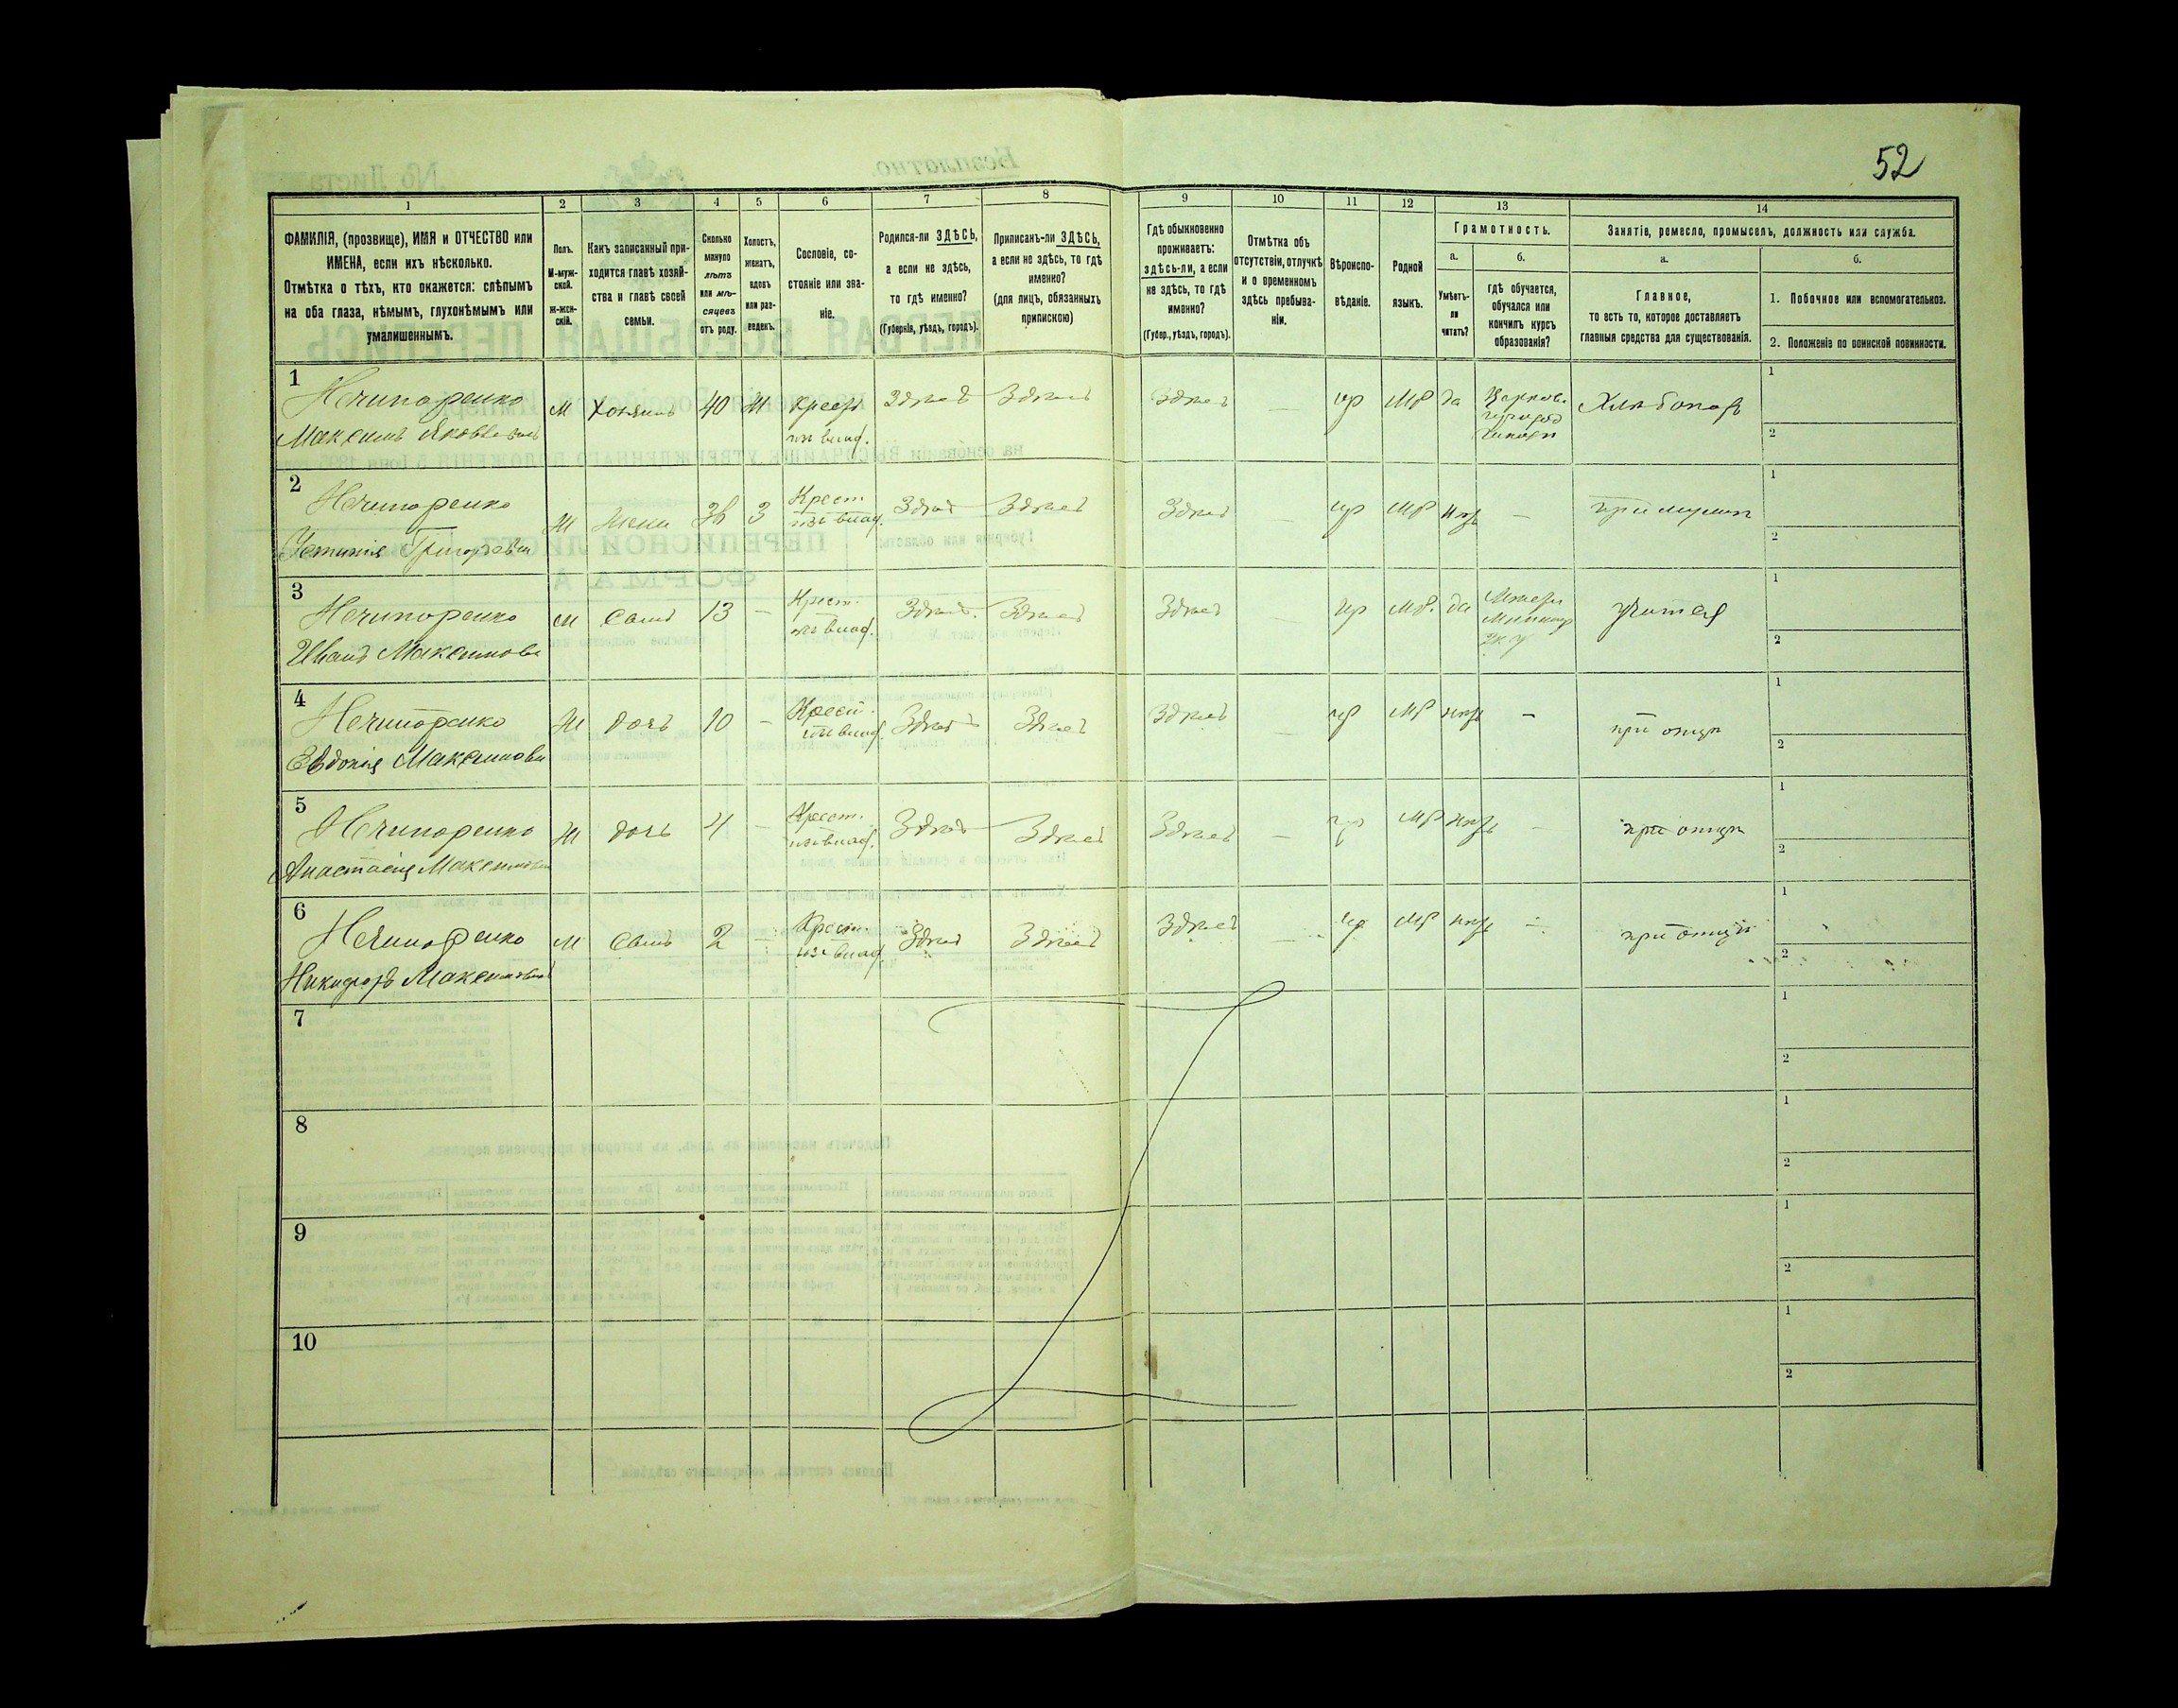 52
1 2 3 4 5 6 7 8 9 10 11 12 13 14
ФАМИЛІЯ, (прозвище), ИМЯ и ОТЧЕСТВО или
ИМЕНА, если ихъ нѣсколько.
Отмѣтка о тѣхъ, кто окажется: слѣпымъ
на оба глаза, нѣмымъ, глухонѣмымъ или
умалишеннымъ.
Полъ.
М-муж-
ской.
Ж-жен-
скій.
Какъ записанный при-
ходится главѣ хозяй-
ства и главѣ своей
семьи.
Сколько
минуло
лѣтъ
или мѣ-
сяцевъ
отъ роду.
Холостъ,
женатъ,
вдовъ
или раз-
веденъ.
Сословіе, со-
стояніе или зва-
ніе.
Родился-ли ЗДѢСЬ,
а если не здѣсь,
то гдѣ именно?
(Губернія, уѣздъ, городъ).
Приписанъ-ли ЗДѢСЬ,
а если не здѣсь, то гдѣ
именно?
(для лицъ, обязанныхъ
припискою)
Гдѣ обыкновенно
проживаетъ:
здѣсь-ли, а если
не здѣсь, то гдѣ
именно?
(Губер., уѣздъ, городъ).
Отмѣтка объ
отсутствіи, отлучкѣ
и о временномъ
здѣсь пребыва-
ніи.
Вѣроиспо-
вѣданіе.
Родной
языкъ.
Грамотность.
а.
Умѣетъ-
ли
читать?
б.
гдѣ обучается,
обучался или
кончилъ курсъ
образованія?
Занятіе, ремесло, промыселъ, должность или служба.
а.
Главное,
то есть то, которое доставляетъ
главныя средства для существованія.
б.
1. Побочное или вспомогательное.
2. Положеніе по воинской повинности.
1
Нечипоренко
Максимъ Яковлевичъ
М Хозяинъ 40 Ж крест
изъ влад.
Здѣсь Здѣсь Здѣсь — пр МР да
Хлѣбопаш
1
2
2
Нечипоренко
Устинія Григорьевна
Ж Жена 3 Крест.
изъ влад.
Здѣсь Здѣсь Здѣсь — пр МР нѣтъ — при мужѣ
1
2
3
Нечипоренко
Иванъ Максимовъ
М Сынъ 13 — Крест.
изъ влад.
Здѣсь Здѣсь Здѣсь пр МР. да
учится
1
2
4
Нечипоренко
Евдокія Максимовна
Ж дочь 10 — Крест.
изъ влад.
Здѣсь Здѣсь Здѣсь — пр МР нѣтъ — при отцѣ
1
2
5
Нечипоренко
Анастасія Максимовна
Ж дочь 4 — Крест.
изъ влад.
Здѣсь Здѣсь Здѣсь — пр МР нѣтъ — при отцѣ
1
2
6
Нечипоренко
Никифоръ Максимовичъ
М Сынъ 2 — Крест.
изъ влад.
Здѣсь Здѣсь Здѣсь — пр МР нѣтъ — при отцѣ
1
2
7
1
2
8
1
2
9
1
2
10
1
2